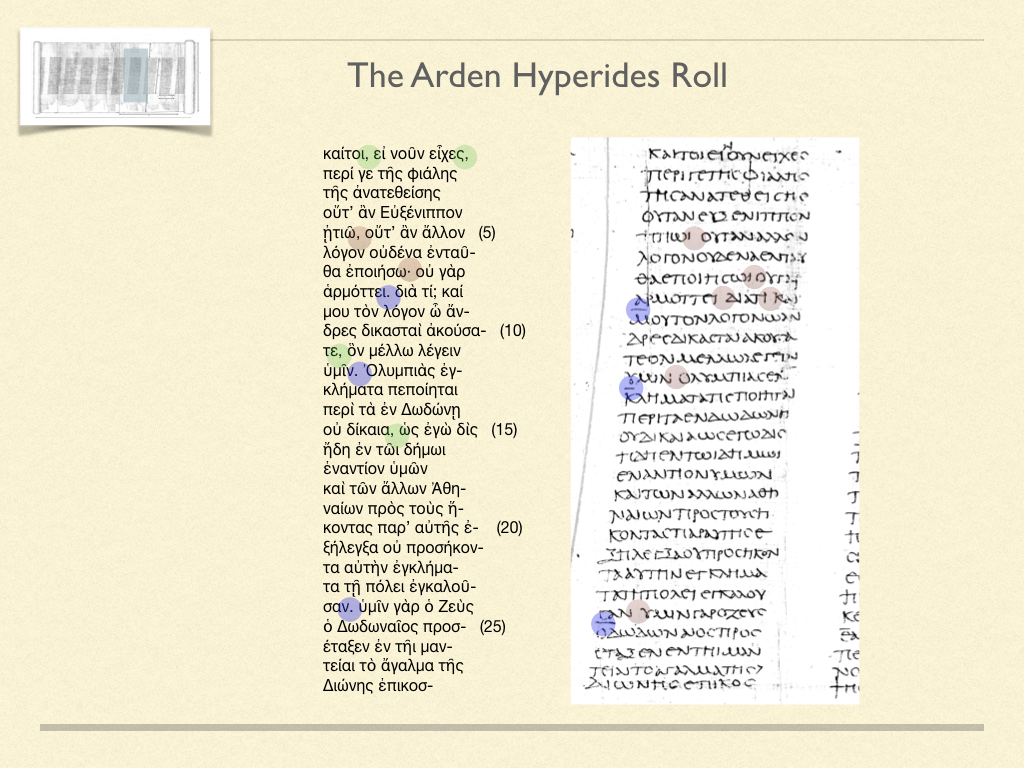 The Arden Hyperides Roll
καίτοι, εἰ νοῦν εἶχες,
περί γε τῆς φιάλης
τῆς ἀνατεθείσης
οὔτ’ ἂν Εὐξένιππον
ᾐτιῶ, οὔτ’ ἂν ἄλλον (5)
λόγον οὐδένα ἐνταῦ-
θα ἐποιήσω· οὐ γὰρ
ἁρμόττει. διὰ τί; καί
μου τὸν λόγον ὦ ἄν-
δρες δικασταὶ ἀκούσα- (10)
τε, ὃν μέλλω λέγειν
ὑμῖν. Ὀλυμπιὰς ἐγ-
κλήματα πεποίηται
περὶ τὰ ἐν Δωδώνῃ
οὐ δίκαια, ὡς ἐγὼ δὶς (15)
ἤδη ἐν τῶι δήμωι
ἐναντίον ὑμῶν
καὶ τῶν ἄλλων Ἀθη-
ναίων πρὸς τοὺς ἥ-
κοντας παρ’ αὐτῆς ἐ- (20)
ξήλεγξα οὐ προσήκον-
τα αὐτὴν ἐγκλήμα-
τα τῇ πόλει ἐγκαλοῦ-
σαν. ὑμῖν γὰρ ὁ Ζεὺς
ὁ Δωδωναῖος προσ- (25)
έταξεν ἐν τῆι μαν-
τείαι τὸ ἄγαλμα τῆς
Διώνης ἐπικοσ-
ΠΕΡΙΓΕΤΗϹΦΙΑΛΗϹ
ΤΗϹΑΝΑΤΕΘΕΙϹΗϹ
ΟΥΤΑΝΕΥΞΕΝΙΠΠΟΝ
ΗΤΙΩΙ ΟΥΤΑΝΑΛΛΟΝ
ΛΟΓΟΝΟΥΔΕΝΑΕΝΤΑΥ
ΘΑΕΠΟΙΗϹΩΙΟΥΓΑΡ
ΑΡΜΟΤΤΕΙ ΔΙΑΤΙ ΚΑΙ
ΜΟΥΤΟΝΛΟΓΟΝΩΑΝ
ΔΡΕϹΔΙΚΑϹΤΑΙΑΚΟΥϹΑ
ΤΕΟΝΜΕΛΛΩΛΕΓΕΙΝ
ΥΜΙΝ ΟΛΥΜΠΙΑϹΕΓ
ΚΛΗΜΑΤΑΠΕΠΟΙΗΤΑΙ
ΠΕΡΙΤΑΕΝΔΩΔΩΝΗ
ΟΥΔΙΚΑΙΑΩϹΕΓΩΔΙϹ
ΕΝΑΝΤΙΟΝΥΜΩΝ
ΚΑΙΤΩΝΑΛΛΩΝΑΘΗ
ΝΑΙΩΝΠΡΟϹΤΟΥϹΗ
ΚΟΝΤΑϹΠΑΡΑΥΤΗϹΕ
ΤΑΑΥΤΗΝΕΓΚΛΗΜΑ
ΤΑΤΗΠΟΛΕΙΕΓΚΑΛΟΥ
ϹΑΝ ΥΜΙΝΓΑΡΟΖΕΥϹ
ΟΔΩΔΩΝΑΙΟϹΠΡΟϹ
ΕΤΑΞΕΝΕΝΤΗΙΜΑΝ
ΤΕΙΑΙΤΟΑΓΑΛΜΑΤΗϹ
ΔΙΩΝΗϹΕΠΙΚΟϹ